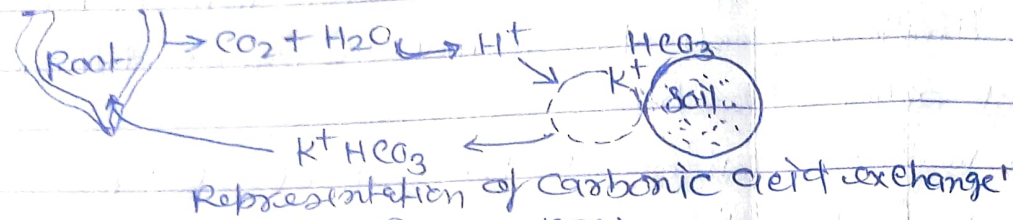 Root → CO2 + H2O ↔ H+ HCO3
K+ Soil
K+ HCO3
Representation of Carbonic acid exchange